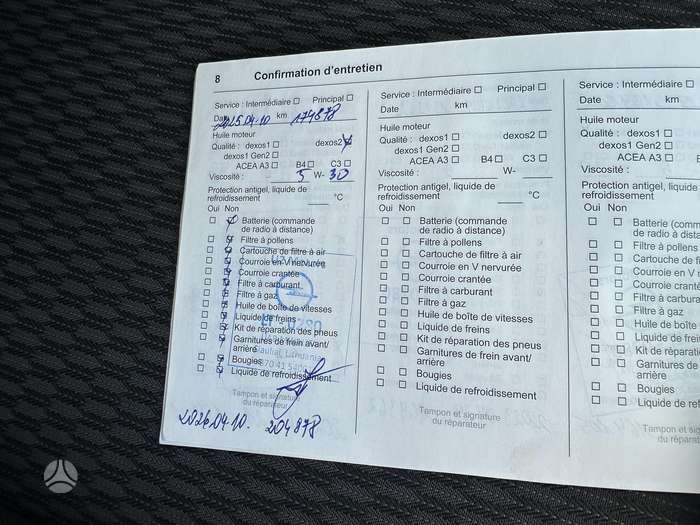 8 Confirmation d'entretien
Service : Intermédiaire ☐ Principal ☐
Date 2025.04.10 km 174878
Huile moteur
Qualité : dexos1 ☐ dexos2 ☒
dexos1 Gen2 ☐
ACEA A3 ☐ B4 ☐ C3 ☐
Viscosité : 5 W- 30
Protection antigel, liquide de
refroidissement ____ °C
Oui Non
Batterie (commande
de radio à distance)
Filtre à pollens
Cartouche de filtre à air
Courroie en V nervurée
Courroie crantée
Filtre à carburant
Filtre à gaz
Huile de boîte de vitesses
Liquide de freins
Kit de réparation des pneus
Garnitures de frein avant/
arrière
Bougies
Liquide de refroidissement
Lithuania
Tampon et signature
du réparateur
2026.04.10. 204878
Service : Intermédiaire ☐ Principal ☐
Date km
Huile moteur
Qualité : dexos1 ☐ dexos2 ☐
dexos1 Gen2 ☐
ACEA A3 ☐ B4 ☐ C3 ☐
Viscosité : ____ W- ____
Protection antigel, liquide de
refroidissement ____ °C
Oui Non
Batterie (commande
de radio à distance)
Filtre à pollens
Cartouche de filtre à air
Courroie en V nervurée
Courroie crantée
Filtre à carburant
Filtre à gaz
Huile de boîte de vitesses
Liquide de freins
Kit de réparation des pneus
Garnitures de frein avant/
arrière
Bougies
Liquide de refroidissement
Tampon et signature
du réparateur
Service : Intermédiaire ☐
Date km
Huile moteur
Qualité : dexos1 ☐
dexos1 Gen2 ☐
ACEA A3 ☐
Viscosité :
Protection antigel, liquide de
refroidissement
Oui Non
Batterie (comm
de radio à dista
Filtre à pollens
Cartouche de fi
Courroie en V n
Courroie crant
Filtre à carbura
Filtre à gaz
Huile de boîte
Liquide de frei
Kit de réparati
Garnitures de
arrière
Bougies
Liquide de ref
Tampon et sig
du répara